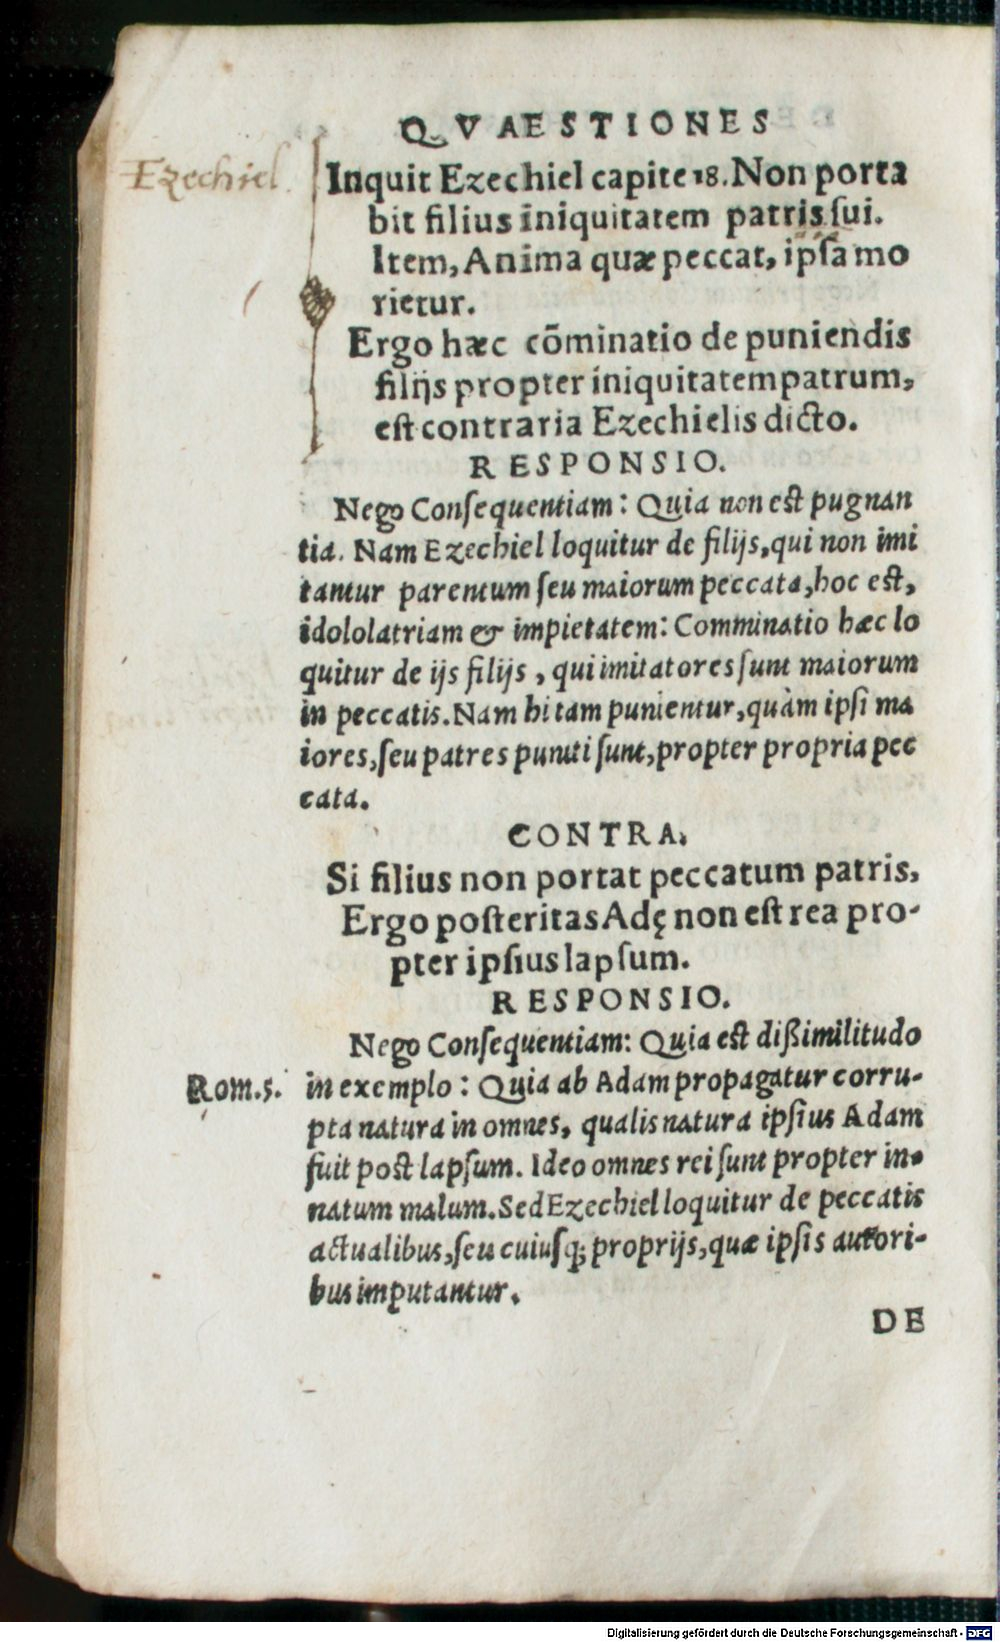 QVAESTIONES
Ezechiel.
Inquit Ezechiel capite 18. Non porta
bit filius iniquitatem patris sui.
Item, Anima quæ peccat, ipsa mo
rietur.
Ergo hæc cõminatio de puniendis
filijs propter iniquitatem patrum,
est contraria Ezechielis dicto.
RESPONSIO.
Nego Consequentiam: Quia non est pugnan
tia. Nam Ezechiel loquitur de filijs, qui non imi
tantur parentum seu maiorum peccata, hoc est,
idololatriam & impietatem: Comminatio hæc lo
quitur de ijs filijs, qui imitatores sunt maiorum
in peccatis. Nam hi tam punientur, quàm ipsi ma
iores, seu patres puniti sunt, propter propria pec
cata.
CONTRA.
Si filius non portat peccatum patris,
Ergo posteritas Adę non est rea pro-
pter ipsius lapsum.
RESPONSIO.
Nego Consequentiam: Quia est dißimilitudo
Rom. 5.
in exemplo: Quia ab Adam propagatur corru-
pta natura in omnes, qualis natura ipsius Adam
fuit post lapsum. Ideo omnes rei sunt propter in-
natum malum. Sed Ezechiel loquitur de peccatis
actualibus, seu cuiusq; proprijs, quæ ipsis autori-
bus imputantur.
DE
Digitalisierung gefördert durch die Deutsche Forschungsgemeinschaft - DFG